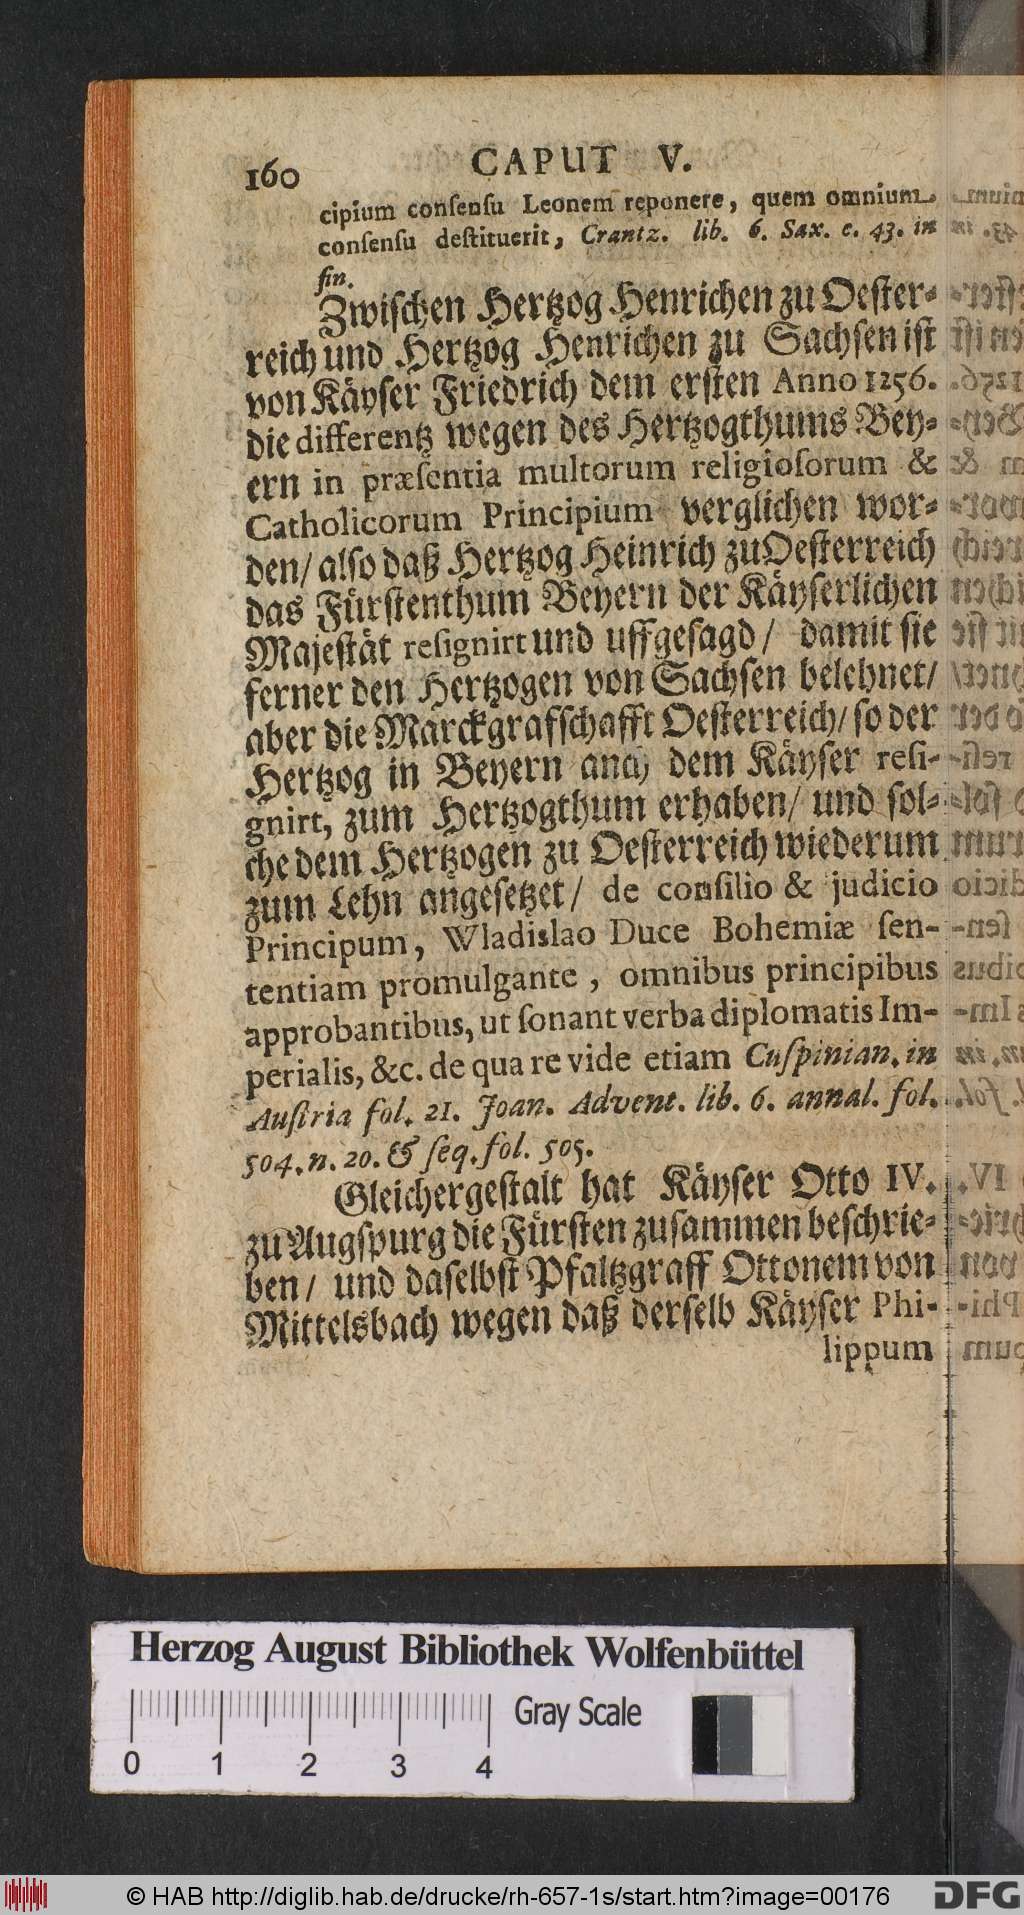 160 CAPUT V.
cipium conſenſu Leonem reponere, quem omnium
conſenſu deſtituerit, Crantz. lib. 6. Sax. c. 43. in
fin.
Zwiſchen Hertzog Henrichen zu Oeſter-
reich und Hertzog Henrichen zu Sachſen iſt
von Käyſer Friedrich dem erſten Anno 1256.
die differentz wegen des Hertzogthums Bey-
ern in præſentia multorum religioſorum &
Catholicorum Principium verglichen wor-
den/ alſo daß Hertzog Heinrich zu Oeſterreich
das Fürſtenthum Beyern der Käyſerlichen
Majeſtät reſignirt und uffgeſagd/ damit ſie
ferner den Hertzogen von Sachſen belehnet/
aber die Marckgrafſchafft Oeſterreich/ ſo der
Hertzog in Beyern auch dem Käyſer reſi-
gnirt, zum Hertzogthum erhaben/ und ſol-
che dem Hertzogen zu Oeſterreich wiederum
zum Lehn angeſetzet/ de conſilio & judicio
Principum, Wladislao Duce Bohemiæ ſen-
tentiam promulgante, omnibus principibus
approbantibus, ut ſonant verba diplomatis Im-
perialis, &c. de qua re vide etiam Cuſpinian. in
Auſtria fol. 21. Joan. Advent. lib. 6. annal. fol.
504. n. 20. & ſeq. fol. 505.
Gleichergeſtalt hat Käyſer Otto IV.
zu Augſpurg die Fürſten zuſammen beſchrie-
ben/ und daſelbſt Pfaltzgraff Ottonem von
Mittelsbach wegen daß derſelb Käyſer Phi-
lippum
Herzog August Bibliothek Wolfenbüttel
Gray Scale
0 1 2 3 4
© HAB http://diglib.hab.de/drucke/rh-657-1s/start.htm?image=00176
DFG